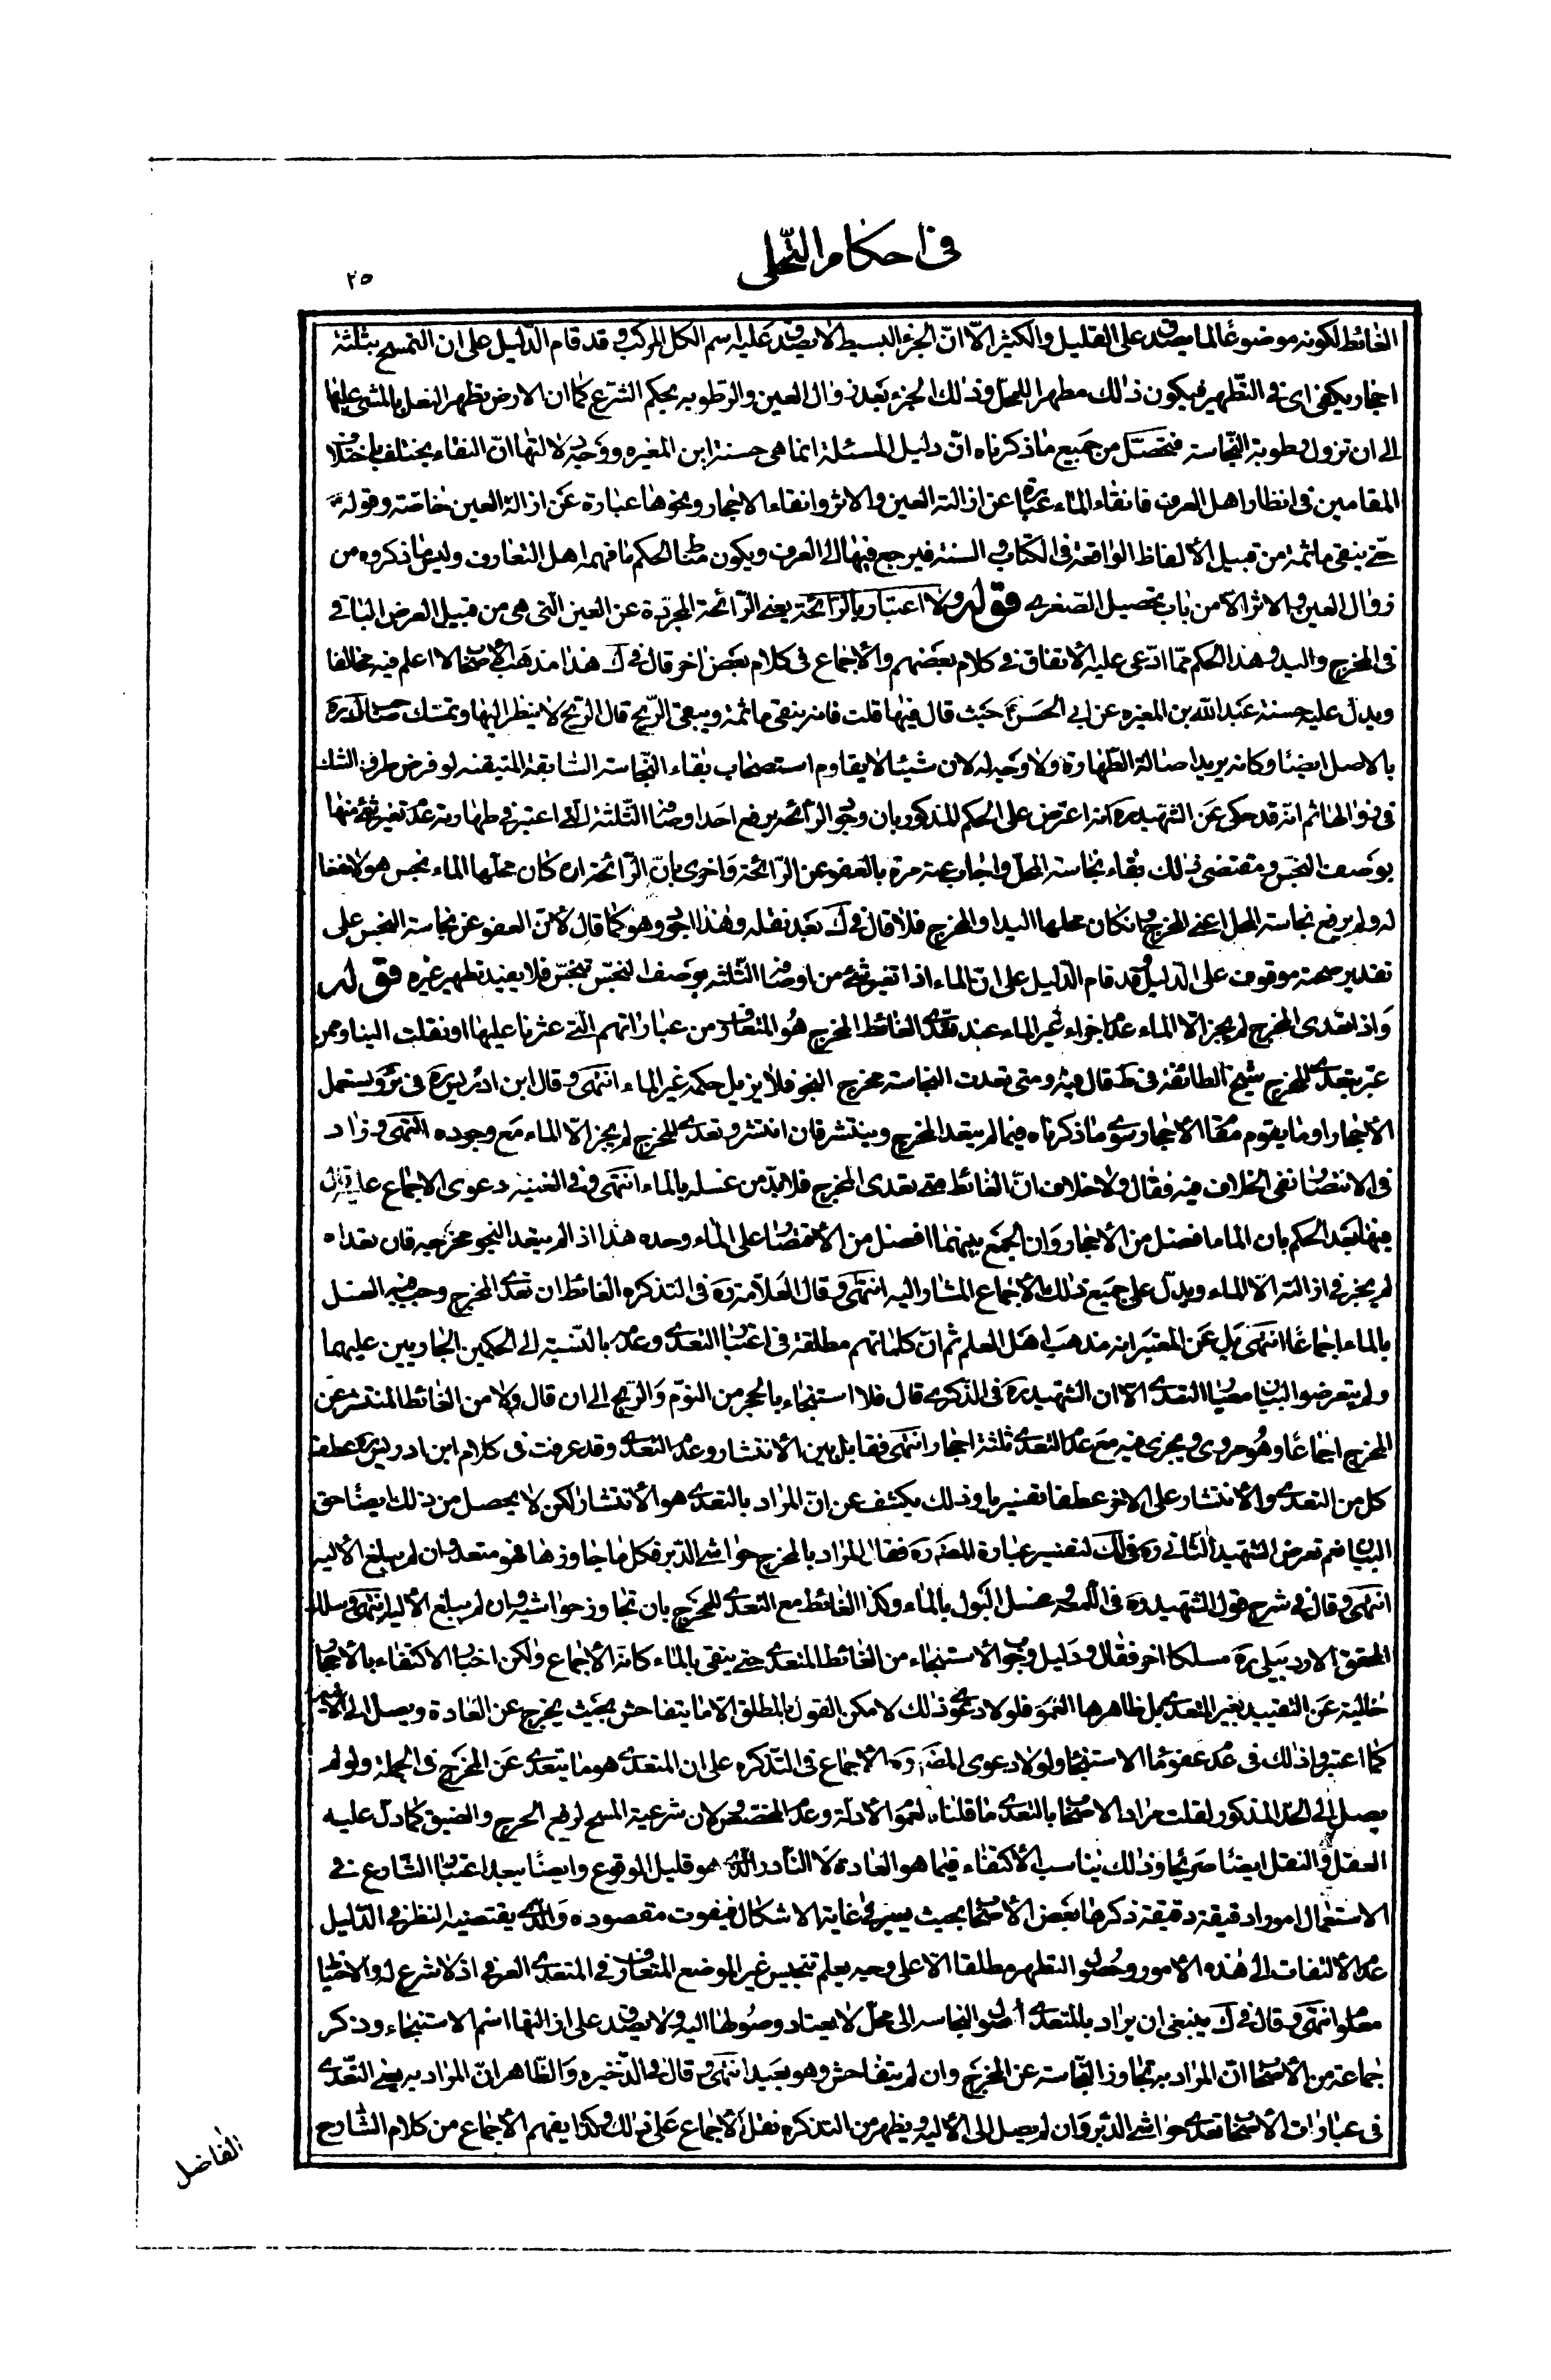 في احكام التخلي
٢٥
الغائط لكونه موضوعا لما يصدق على القليل والكثير الا ان الجزء البسيط لا يصدق عليه اسم الكل المركب وقد قام الدليل على ان التمسح بثلثة
احجار يكفى اى في التطهير فيكون ذلك مطهرا للمحل وذلك الجزء بعد زوال العين والرطوبه بحكم الشرع كما ان الارض تطهر النعل بالمشى عليها
الى ان تزول رطوبة النجاسة فتحصل من جميع ما ذكرناه ان دليل المسئلة انما هى حسنة ابن المغيره ووجه دلالتها ان النقاء يختلف باختلاف
المقامين في انظار اهل العرف فانقاء الماء عبارة عن ازالة العين والاثر وانقاء الاحجار ونحوها عبارة عن ازالة العين خاصة وقوله
حتى ينقى ماثمة من قبيل الالفاظ الواقعة في الكتاب والسنة فيرجع فيها الى العرف ويكون مناط الحكم ما فهمه اهل التعارف وليس ما ذكروه من
زوال العين والاثر الا من باب تحصيل الصغرى قوله ولا اعتبار بالرائحة يعنى الرائحة المجردة عن العين التى هى من قبيل العرض الباقي
في المخرج واليد وهذا الحكم مما ادعى عليه الاتفاق في كلام بعضهم والاجماع في كلام بعض اخر قال في ك هذا مذهب الاصحاب لا اعلم فيه مخالفا
ويدل عليه حسنة عبد الله بن المغيره عن ابي الحسن ع حيث قال فيها قلت فانه ينقى ماثمة ويبقى الريح قال الريح لا ينظر اليها وتمسك صاحب المدارك ره
بالاصل ايضا وكانه يريد اصالة الطهارة ولا وجه له لان شيئا لا يقاوم استصحاب بقاء النجاسة السابقة المتيقنه لو فرض طرف الشك
في زوالها ثم انه قد حكى عن الشهيد ره انه اعترض على الحكم المذكور بان وجود الرائحه يرفع احد اوصاف الثلثة الذى اعتبر في طهارته عدم تغير شئ منها
بوصف النجس ومقتضى ذلك بقاء نجاسة المحل واجاب عنه مرة بالعفو عن الرائحة واخرى بان الرائحة ان كان محلها الماء نجس هو لانفعا
له ولم يرفع نجاسة المحل اعنى المخرج وان كان محلها اليد او المخرج فلا قال في ك بعد نقله وهذا الجواب وهو كما قال لان العفو عن نجاسة النجس على
تقدير صحته موقوف على الدليل وقد قام الدليل على ان الماء اذا تغير شئ من اوصافه الثلثه بوصف النجس تنجس فلا يفيد تطهير غيره قوله
واذا تعدى المخرج لم يجز الا الماء عدم اجزاء غير الماء عند تعدى الغائط المخرج هو المتعارف من عباراتهم التى عثرنا عليها او نقلت الينا وممن
عبر بتعدى المخرج شيخ الطائفة في ط قال فيه ومتى تعدت النجاسة مخرج النجو فلا يزيل حكمه غير الماء انتهى وقال ابن ادريس ره في ئر ويستعمل
الاحجار او ما يقوم مقام الاحجار سوى ما ذكرناه فيما لم يتعد المخرج وينتشر فان انتشر وتعدى المخرج لم يجز الا الماء مع وجوده انتهى وزاد
في الانتصار نفى الخلاف فيه فقال ولا خلاف ان الغائط متى تعدى المخرج فلا بد من غسله بالماء انتهى وفي الغنيه دعوى الاجماع عليه قال
فيها بعد الحكم بان الماء افضل من الاحجار وان الجمع بينهما افضل من الاقتصار على الماء وحده هذا اذا لم يتعد النجو مخرجه فان تعداه
لم يجز في ازالته الا الماء ويدل على جميع ذلك الاجماع المشار اليه انتهى وقال العلامة ره في التذكره الغائط ان تعدى المخرج وجب فيه الغسل
بالماء اجماعا انتهى بل عن المعتبر انه مذهب اهل العلم ثم ان كلماتهم مطلقة في اعتبار التعدى وعدمه بالنسبه الى الحكمين الجاريين عليهما
ولم يتعرضوا لبيان مصداق التعدى الا ان الشهيد ره في الذكرى قال فلا استنجاء بالحجر من النوم والريح الى ان قال ولا من الغائط المنتشر عن
المخرج اجماعا وهو مروى ويجزى فيه مع عدم التعدى ثلثة احجار انتهى فقابل بين الانتشار وعدم التعدى وقد عرفت في كلام ابن ادريس ره عطف
كل من التعدى والانتشار على الاخر عطفا تفسيريا وذلك يكشف عن ان المراد بالتعدى هو الانتشار لكن لا يحصل من ذلك ايضا حق
البيان نعم تعرض الشهيد الثانى ره في لك لتفسير عبارة المصنف ره فقال المراد بالمخرج حواشى الدبر فكل ما جاوزها فهو متعد وان لم يبلغ الاليه
انتهى وقال في شرح قول الشهيد ره في اللمعه غسل البول بالماء وكذا الغائط مع التعدى للمخرج بان تجاوز حواشيه وان لم يبلغ الاليه انتهى وسلك
المحقق الاردبيلى ره مسلكا اخر فقال ودليل وجوب الاستنجاء من الغائط المتعدى حتى ينقى بالماء كانه الاجماع ولكن اخبار الاكتفاء بالاحجار
خالية عن التقييد بغير المتعدى بل ظاهرها العموم فلولا دعوى ذلك لامكن القول بالمطلق الا ما يتفاحش بحيث يخرج عن العادة ويصل الى الالية
كما اعتبروا ذلك في عدم عفو ماء الاستنجاء ولولا دعوى المصنف ره الاجماع في التذكره على ان المتعدى هو ما يتعدى عن المخرج في الجملة ولو لم
يصل الى الحد المذكور لقلت مراد الاصحاب بالتعدى ما قلناه لعموم الادلة وعدم المخصص ولان شرعية المسح لرفع الحرج والضيق كما دل عليه
العقل والنقل ايضا صريحا وذلك يناسب الاكتفاء فيما هو العادة لا النادر الذى هو قليل الوقوع وايضا يبعد اعتبار الشارع في
الاستعمال امورا دقيقة دقيقة ذكرها بعض الاصحاب بحيث يصير في غاية الاشكال فيفوت مقصوده والذى يقتضيه النظر في الدليل
عدم الالتفات الى هذه الامور وحصول التطهر مطلقا الا على وجه يعلم تنجيس غير الموضع المتعارف في المتعدى العرفي اذ لا شرع له والاحتياط
معلوم انتهى وقال في ك ينبغى ان يراد بالمتعدى وصول النجاسه الى محل لا يعتاد وصولها اليه ولا يصدق على ازالتها اسم الاستنجاء وذكر
جماعة من الاصحاب ان المراد به تجاوز النجاسة عن المخرج وان لم يتفاحش وهو بعيد انتهى وقال في الذخيره والظاهر ان المراد به يعنى التعدى
في عبارات الاصحاب تعدى حواشى الدبر وان لم يصل الى الاليه ويظهر من التذكره نقل الاجماع على ذلك وكذا يفهم الاجماع من كلام الشارح
الفاضل